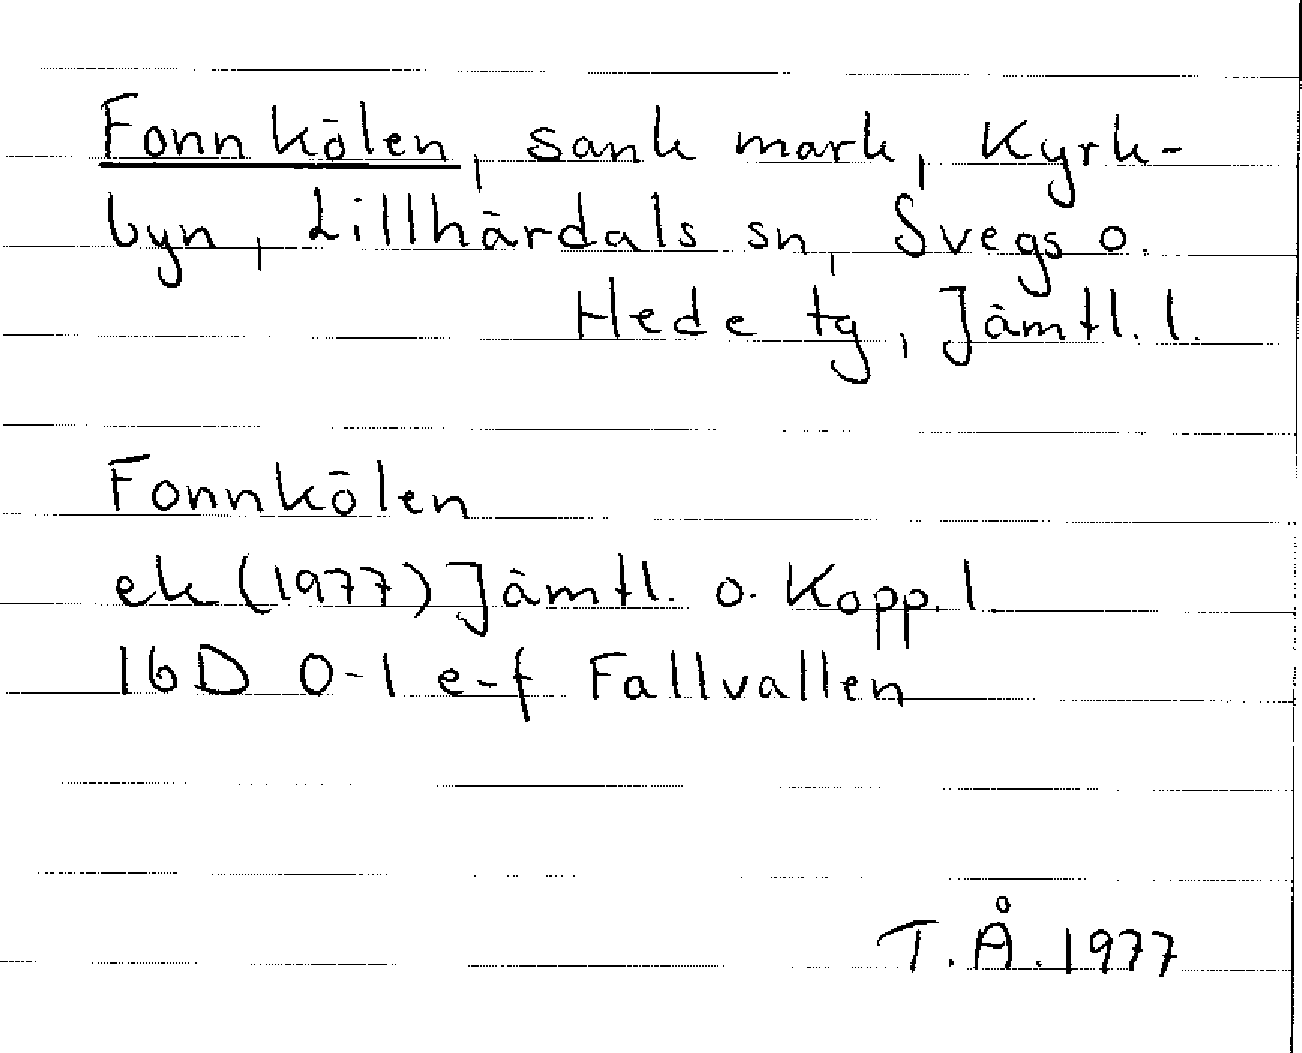 Fonnkölen, sank mark, Kyrk-
byn, Lillhärdals sn, Svegs o.
Hede tg, Jämtl. l.
Fonnkölen
ek (1977) Jämtl. o. Kopp. l
16D 0-1 e-f Fallvallen
T.Å. 1977